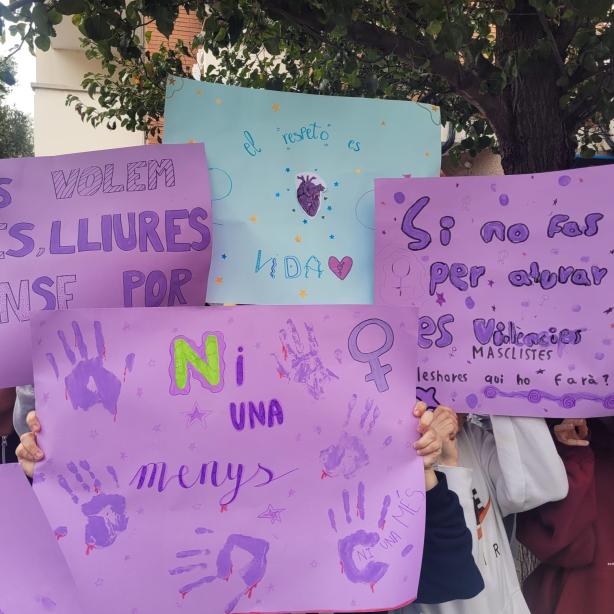 S VOLEM
ES, LLIURES
NSE POR
el "respeto" es
VIDA
Si no fas
per aturar
es Violències
MASCLISTES
leshores qui ho farà?
Ni
UNA
menys
NI UNA MÉS